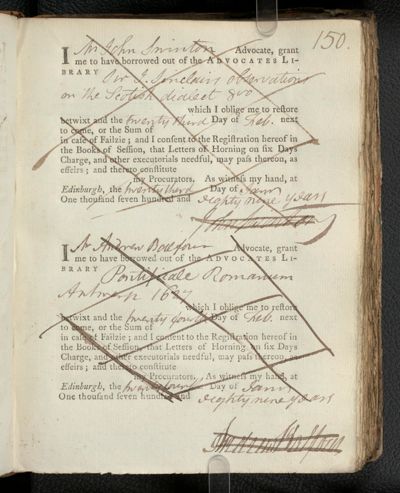 150.
I Mr John Swinton Advocate, grant
me to have borrowed out of the ADVOCATES LI-
BRARY Sir J. Sinclairs observations
on the Scotish dialect 8vo
which I oblige me to restore
betwixt and the twenty third Day of Feb. next
to come, or the Sum of
in case of Failzie; and I consent to the Registration hereof in
the Books of Session, that Letters of Horning on six Days
Charge, and other executorials needful, may pass thereon, as
effeirs; and thereto constitute
my Procurators. As witness my hand, at
Edinburgh, the twenty third Day of Janry
One thousand seven hundred and eighty nine years
John Swinton
I Mr Andrew Balfour Advocate, grant
me to have borrowed out of the ADVOCATES LI-
BRARY Pontificale Romanum
Antwerp 1627
which I oblige me to restore
betwixt and the twenty fourth Day of Feb. next
to come, or the Sum of
in case of Failzie; and I consent to the Registration hereof in
the Books of Session, that Letters of Horning on six Days
Charge, and other executorials needful, may pass thereon, as
effeirs; and thereto constitute
my Procurators. As witness my hand, at
Edinburgh, the twenty fourth Day of Janry
One thousand seven hundred and eighty nine years
Andrew Balfour